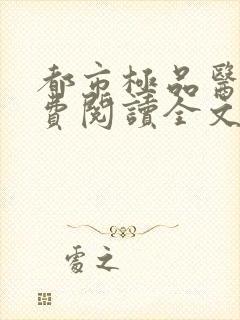 都市極品醫
費閱讀全文
處之